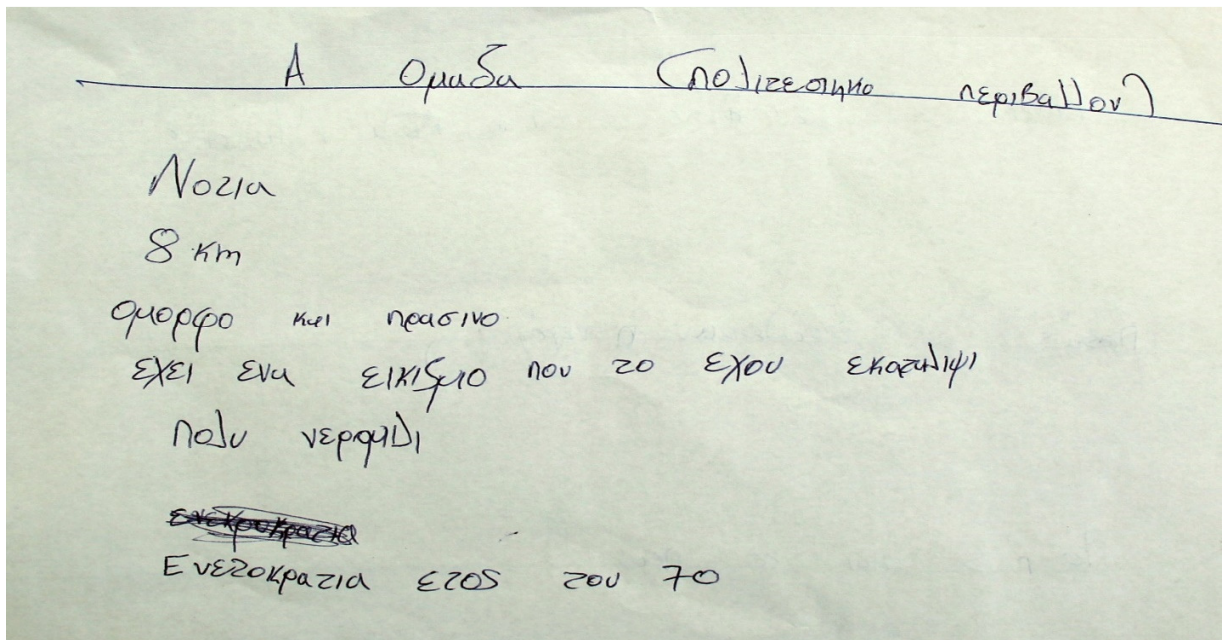 Α Ομαδα (πολιτεστηκο περιβαλλον)
Νοτια
8 Km
ομορφο και πρασινο
εχει ενα εικιζμο που το εχου εκαταλιψι
πολυ νεροφιδι
Ενετοκρατια ετος του 70